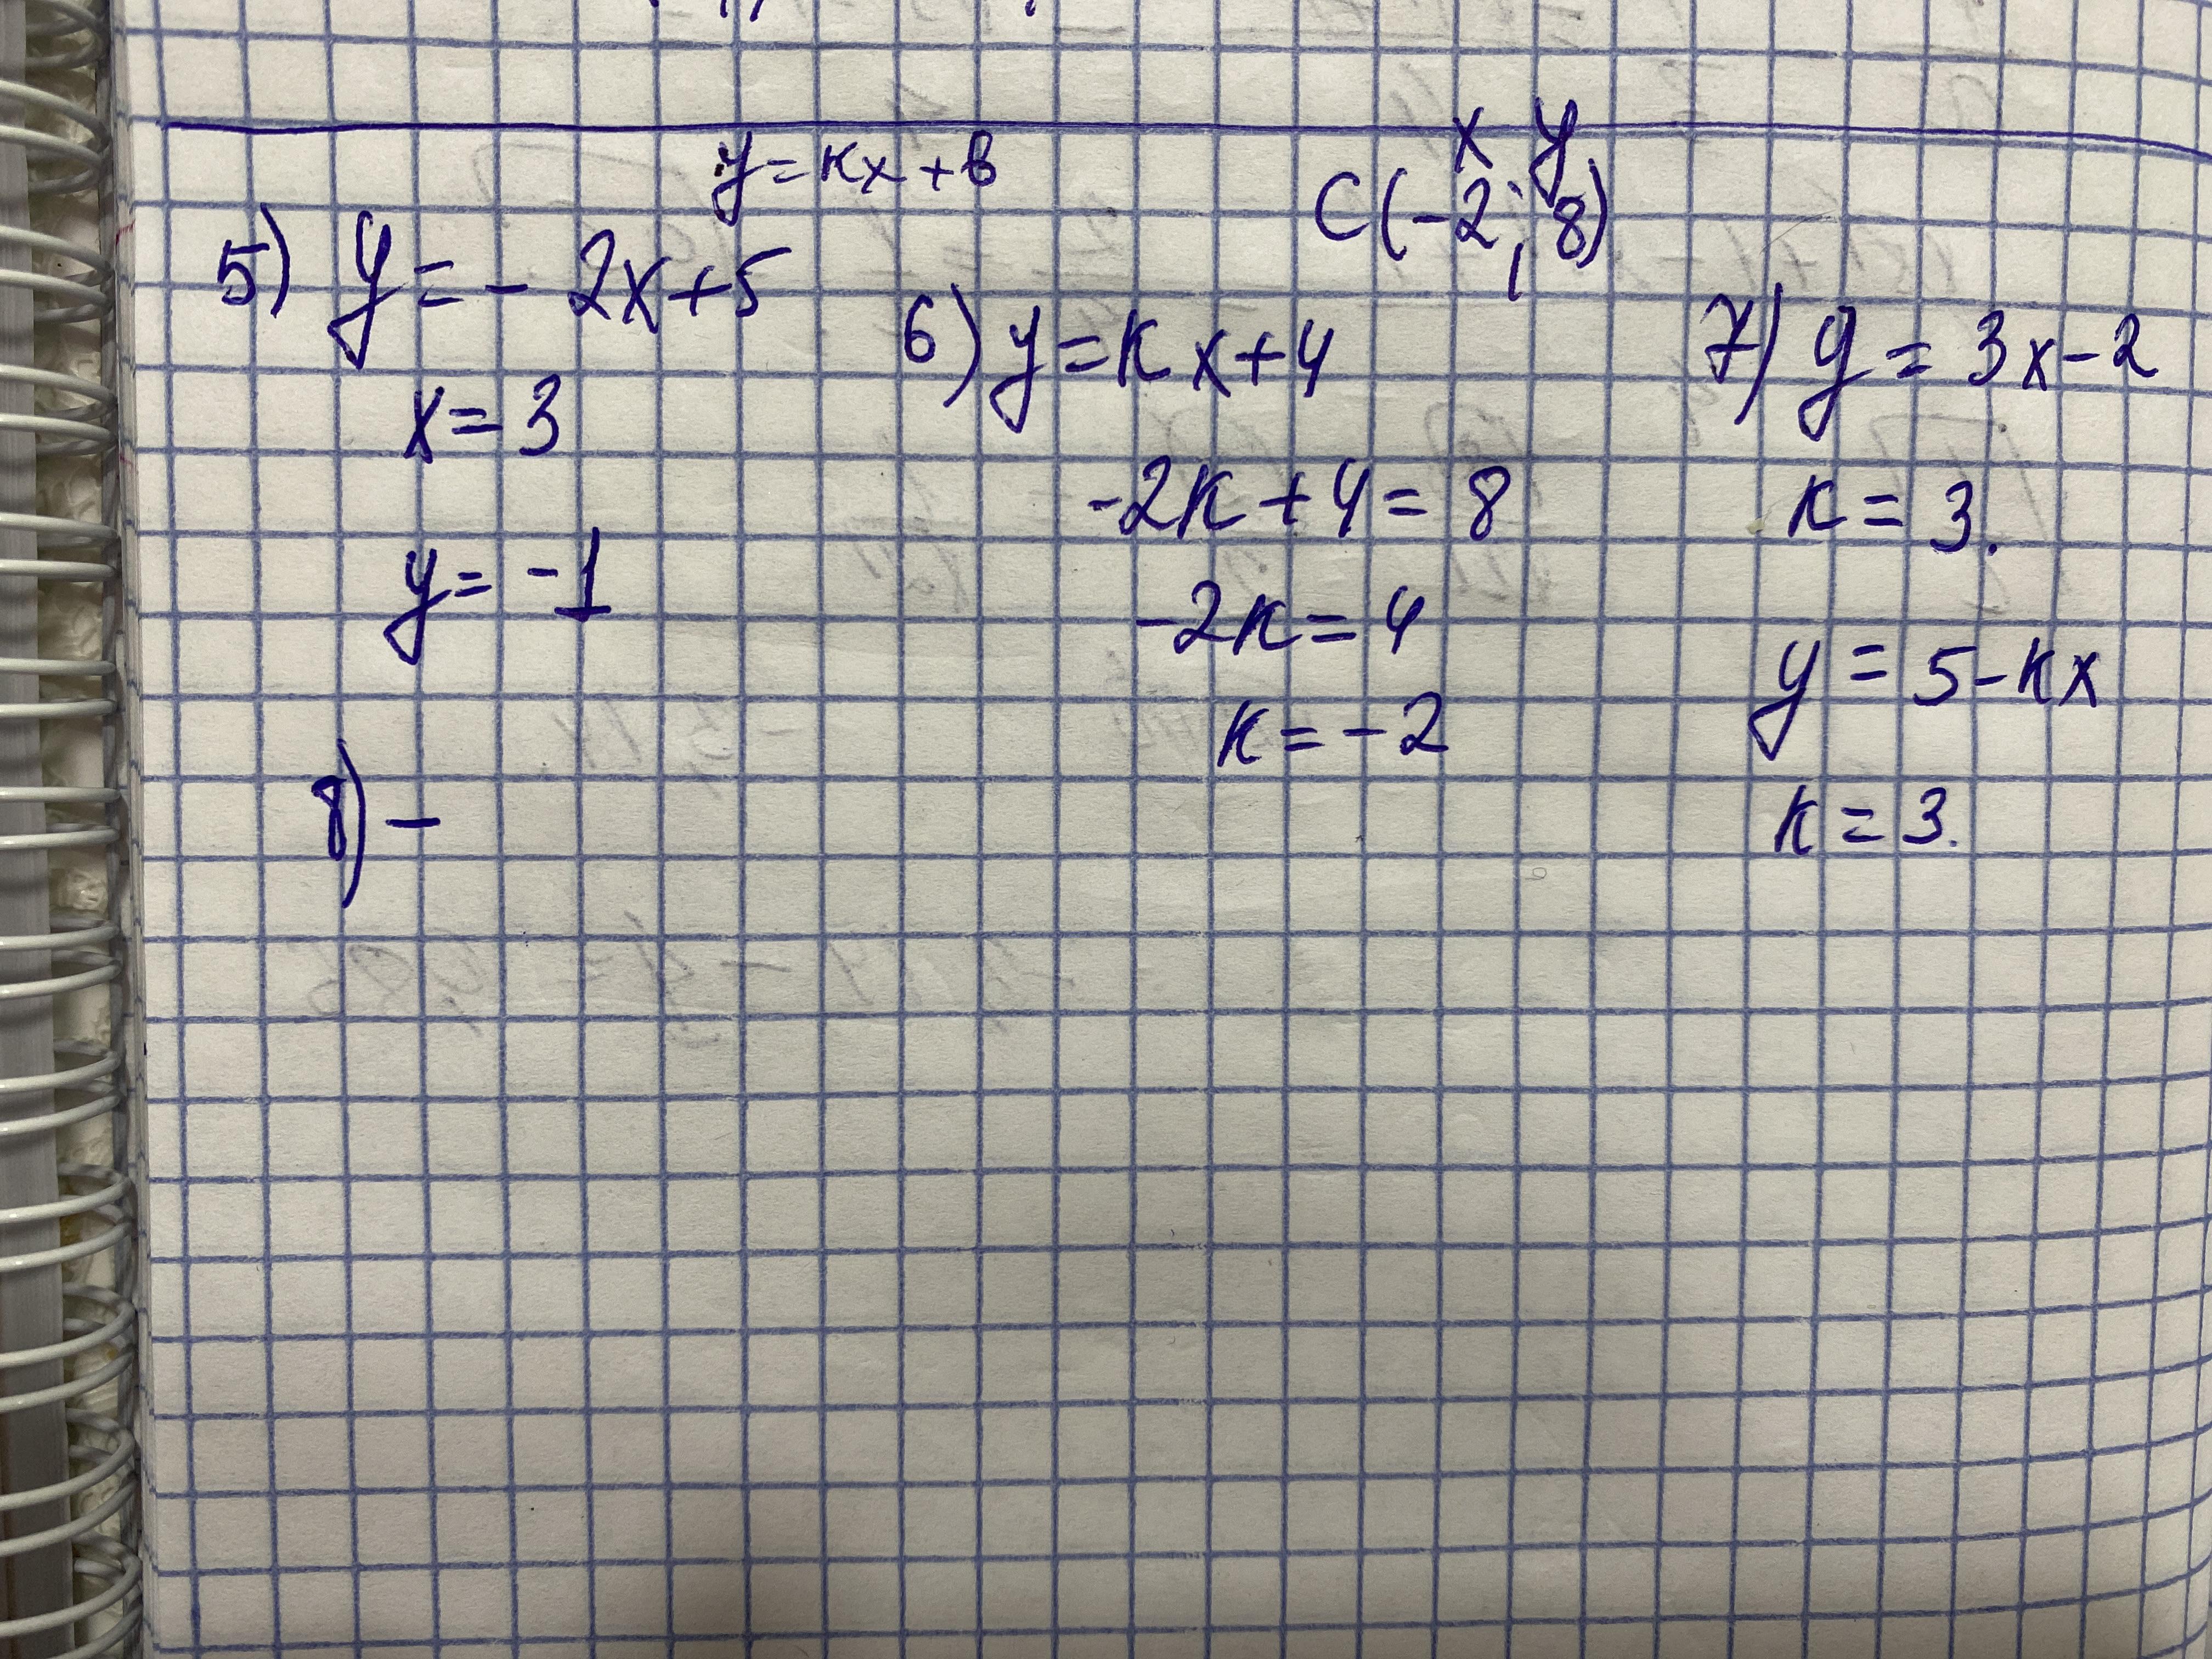 y = кx + в
x y
C(-2; 8)
5) y = - 2x+5
x = 3
y = -1
6) y = кx+4
-2к + 4 = 8
-2к = 4
к = -2
7) y = 3x-2
к = 3.
y = 5-кx
к = 3.
8) -